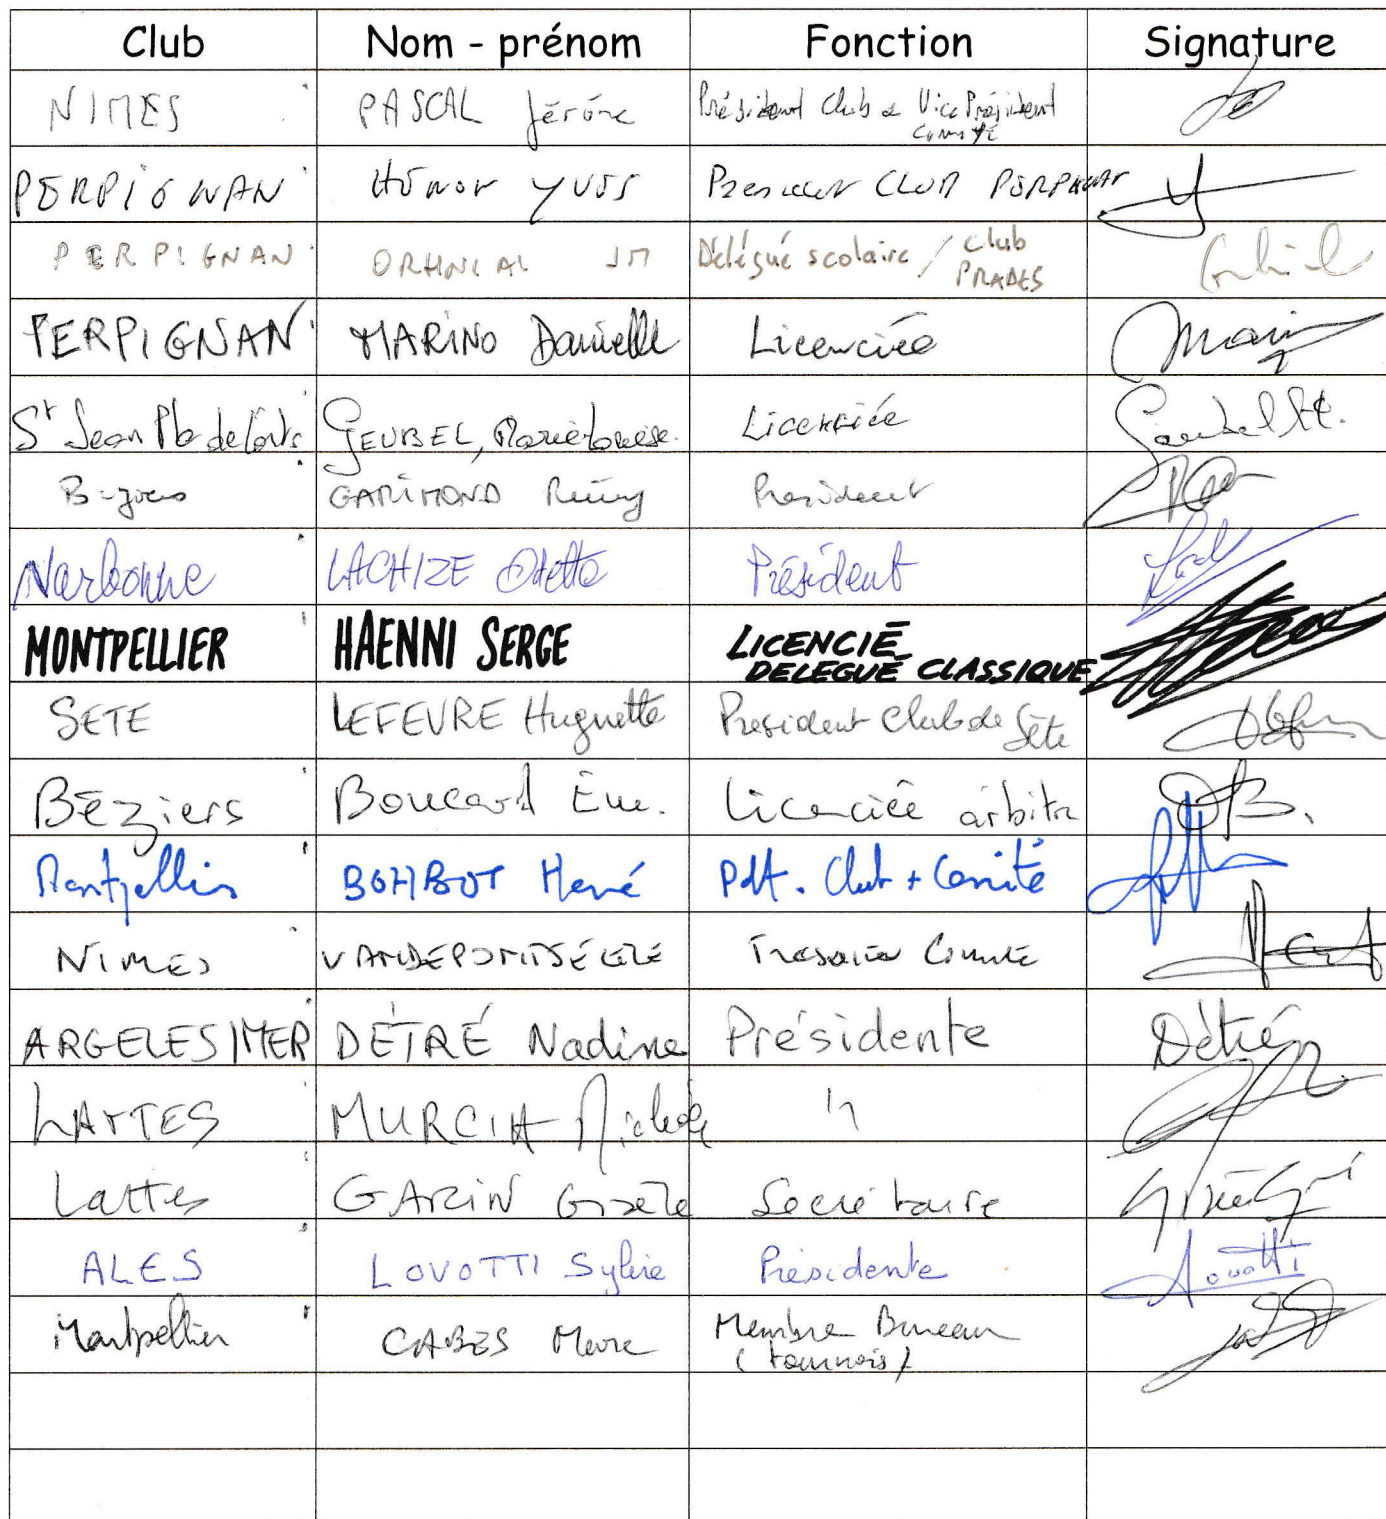 Club Nom - prénom Fonction Signature
NIMES PASCAL Jérôme Président Club & Vice Président
Comité
PERPIGNAN YVES President CLUB PERPIGNAN
PERPIGNAN JM Délégué scolaire / Club
PRADES
PERPIGNAN MARINO Danielle Licenciée
St Jean Pla de Corts GEUBEL, Marie Louise. Licenciée
Beziers GARIMOND Rémy President
Narbonne LACHIZE Odette Président
MONTPELLIER HAENNI SERGE LICENCIÉ
DELEGUÉ CLASSIQUE
SETE LEFEVRE Huguette President Club de Sète
Béziers Boucard Èm. Licenciée arbitre
Montpellier BOHBOT Hervé Pdt. Club + Comité
NIMES Tresorier Comité
ARGELES/MER DÉTRÉ Nadine Présidente Détré
LATTES MURCIA Michèle "
Lattes GARIN Gisèle Secrétaire
ALES LOVOTTI Sylvie Présidente Lovotti
Montpellier CABES Membre Bureau
(tournois)